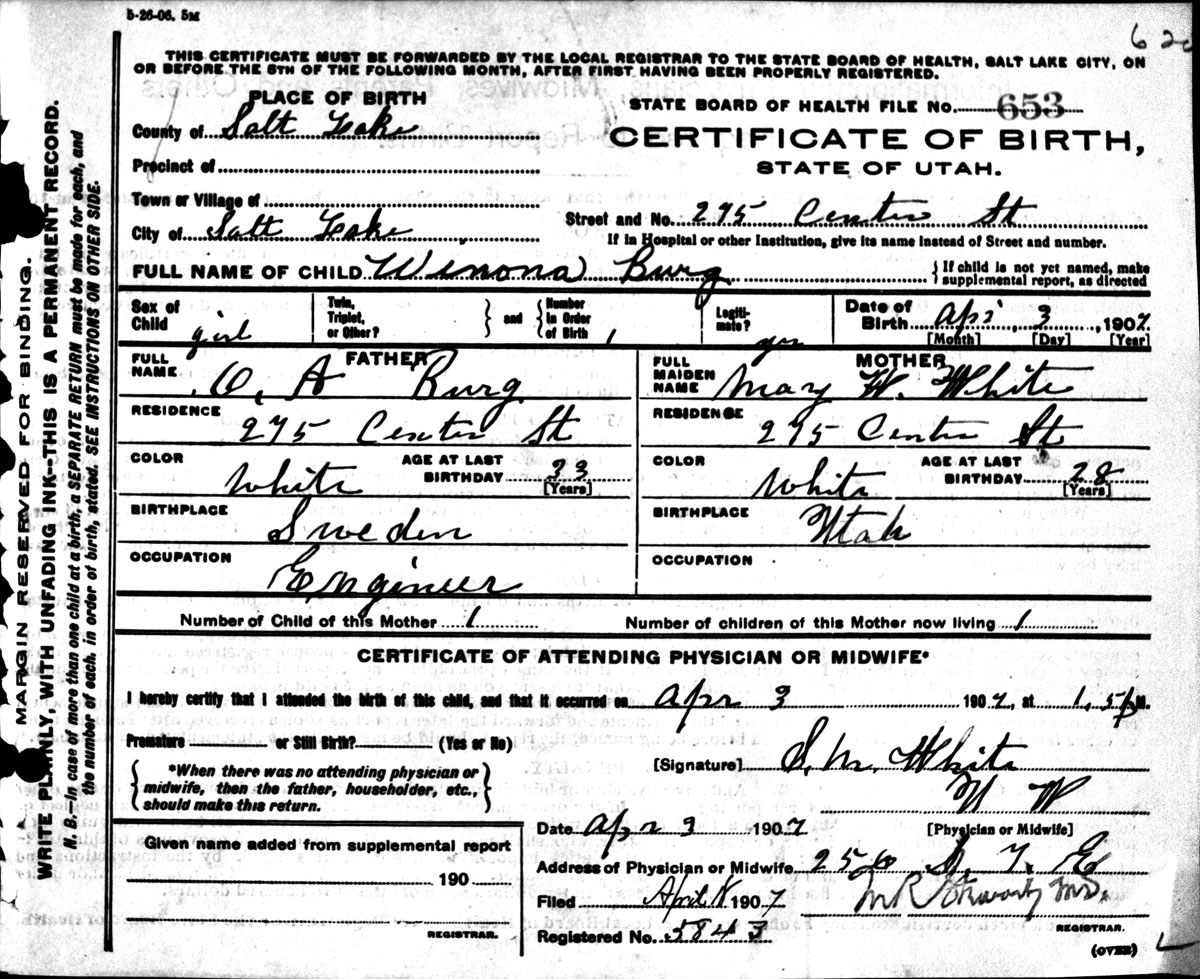 5-26-06. 5M
THIS CERTIFICATE MUST BE FORWARDED BY THE LOCAL REGISTRAR TO THE STATE BOARD OF HEALTH, SALT LAKE CITY, ON
OR BEFORE THE 5TH OF THE FOLLOWING MONTH, AFTER FIRST HAVING BEEN PROPERLY REGISTERED.
PLACE OF BIRTH
County of Salt Lake
Precinct of
Town or Village of
City of Salt Lake
STATE BOARD OF HEALTH FILE NO. 653
CERTIFICATE OF BIRTH,
STATE OF UTAH.
Street and No. 275 Center St
If in Hospital or other Institution, give its name instead of Street and number.
FULL NAME OF CHILD Winona Burg
If child is not yet named, make
supplemental report, as directed
Sex of Child girl
Twin, Triplet, or Other?
and
Number In Order of Birth 1
Legitimate? yes
Date of Birth Apr 3, 1907
[Month] [Day] [Year]
FATHER
FULL NAME O. A Burg
RESIDENCE 275 Center St
COLOR White
AGE AT LAST BIRTHDAY 33
[Years]
BIRTHPLACE Sweden
OCCUPATION Engineer
MOTHER
FULL MAIDEN NAME Mary W. White
RESIDENCE 275 Center St
COLOR White
AGE AT LAST BIRTHDAY 28
[Years]
BIRTHPLACE Utah
OCCUPATION
Number of Child of this Mother 1
Number of children of this Mother now living 1
CERTIFICATE OF ATTENDING PHYSICIAN OR MIDWIFE*
I hereby certify that I attended the birth of this child, and that it occurred on Apr 3 1907, at M.
Premature or Still Birth? (Yes or No)
*When there was no attending physician or
midwife, then the father, householder, etc.,
should make this return.
[Signature] S. M. White
Date Apr 3 1907
[Physician or Midwife]
Address of Physician or Midwife 256
Given name added from supplemental report
190
REGISTRAR.
Filed April 1907
Registered No. 5843
REGISTRAR.
(OVER)
MARGIN RESERVED FOR BINDING.
WRITE PLAINLY, WITH UNFADING INK--THIS IS A PERMANENT RECORD.
N. B.—In case of more than one child at a birth, a SEPARATE RETURN must be made for each, and
the number of each, in order of birth, stated. SEE INSTRUCTIONS ON OTHER SIDE.